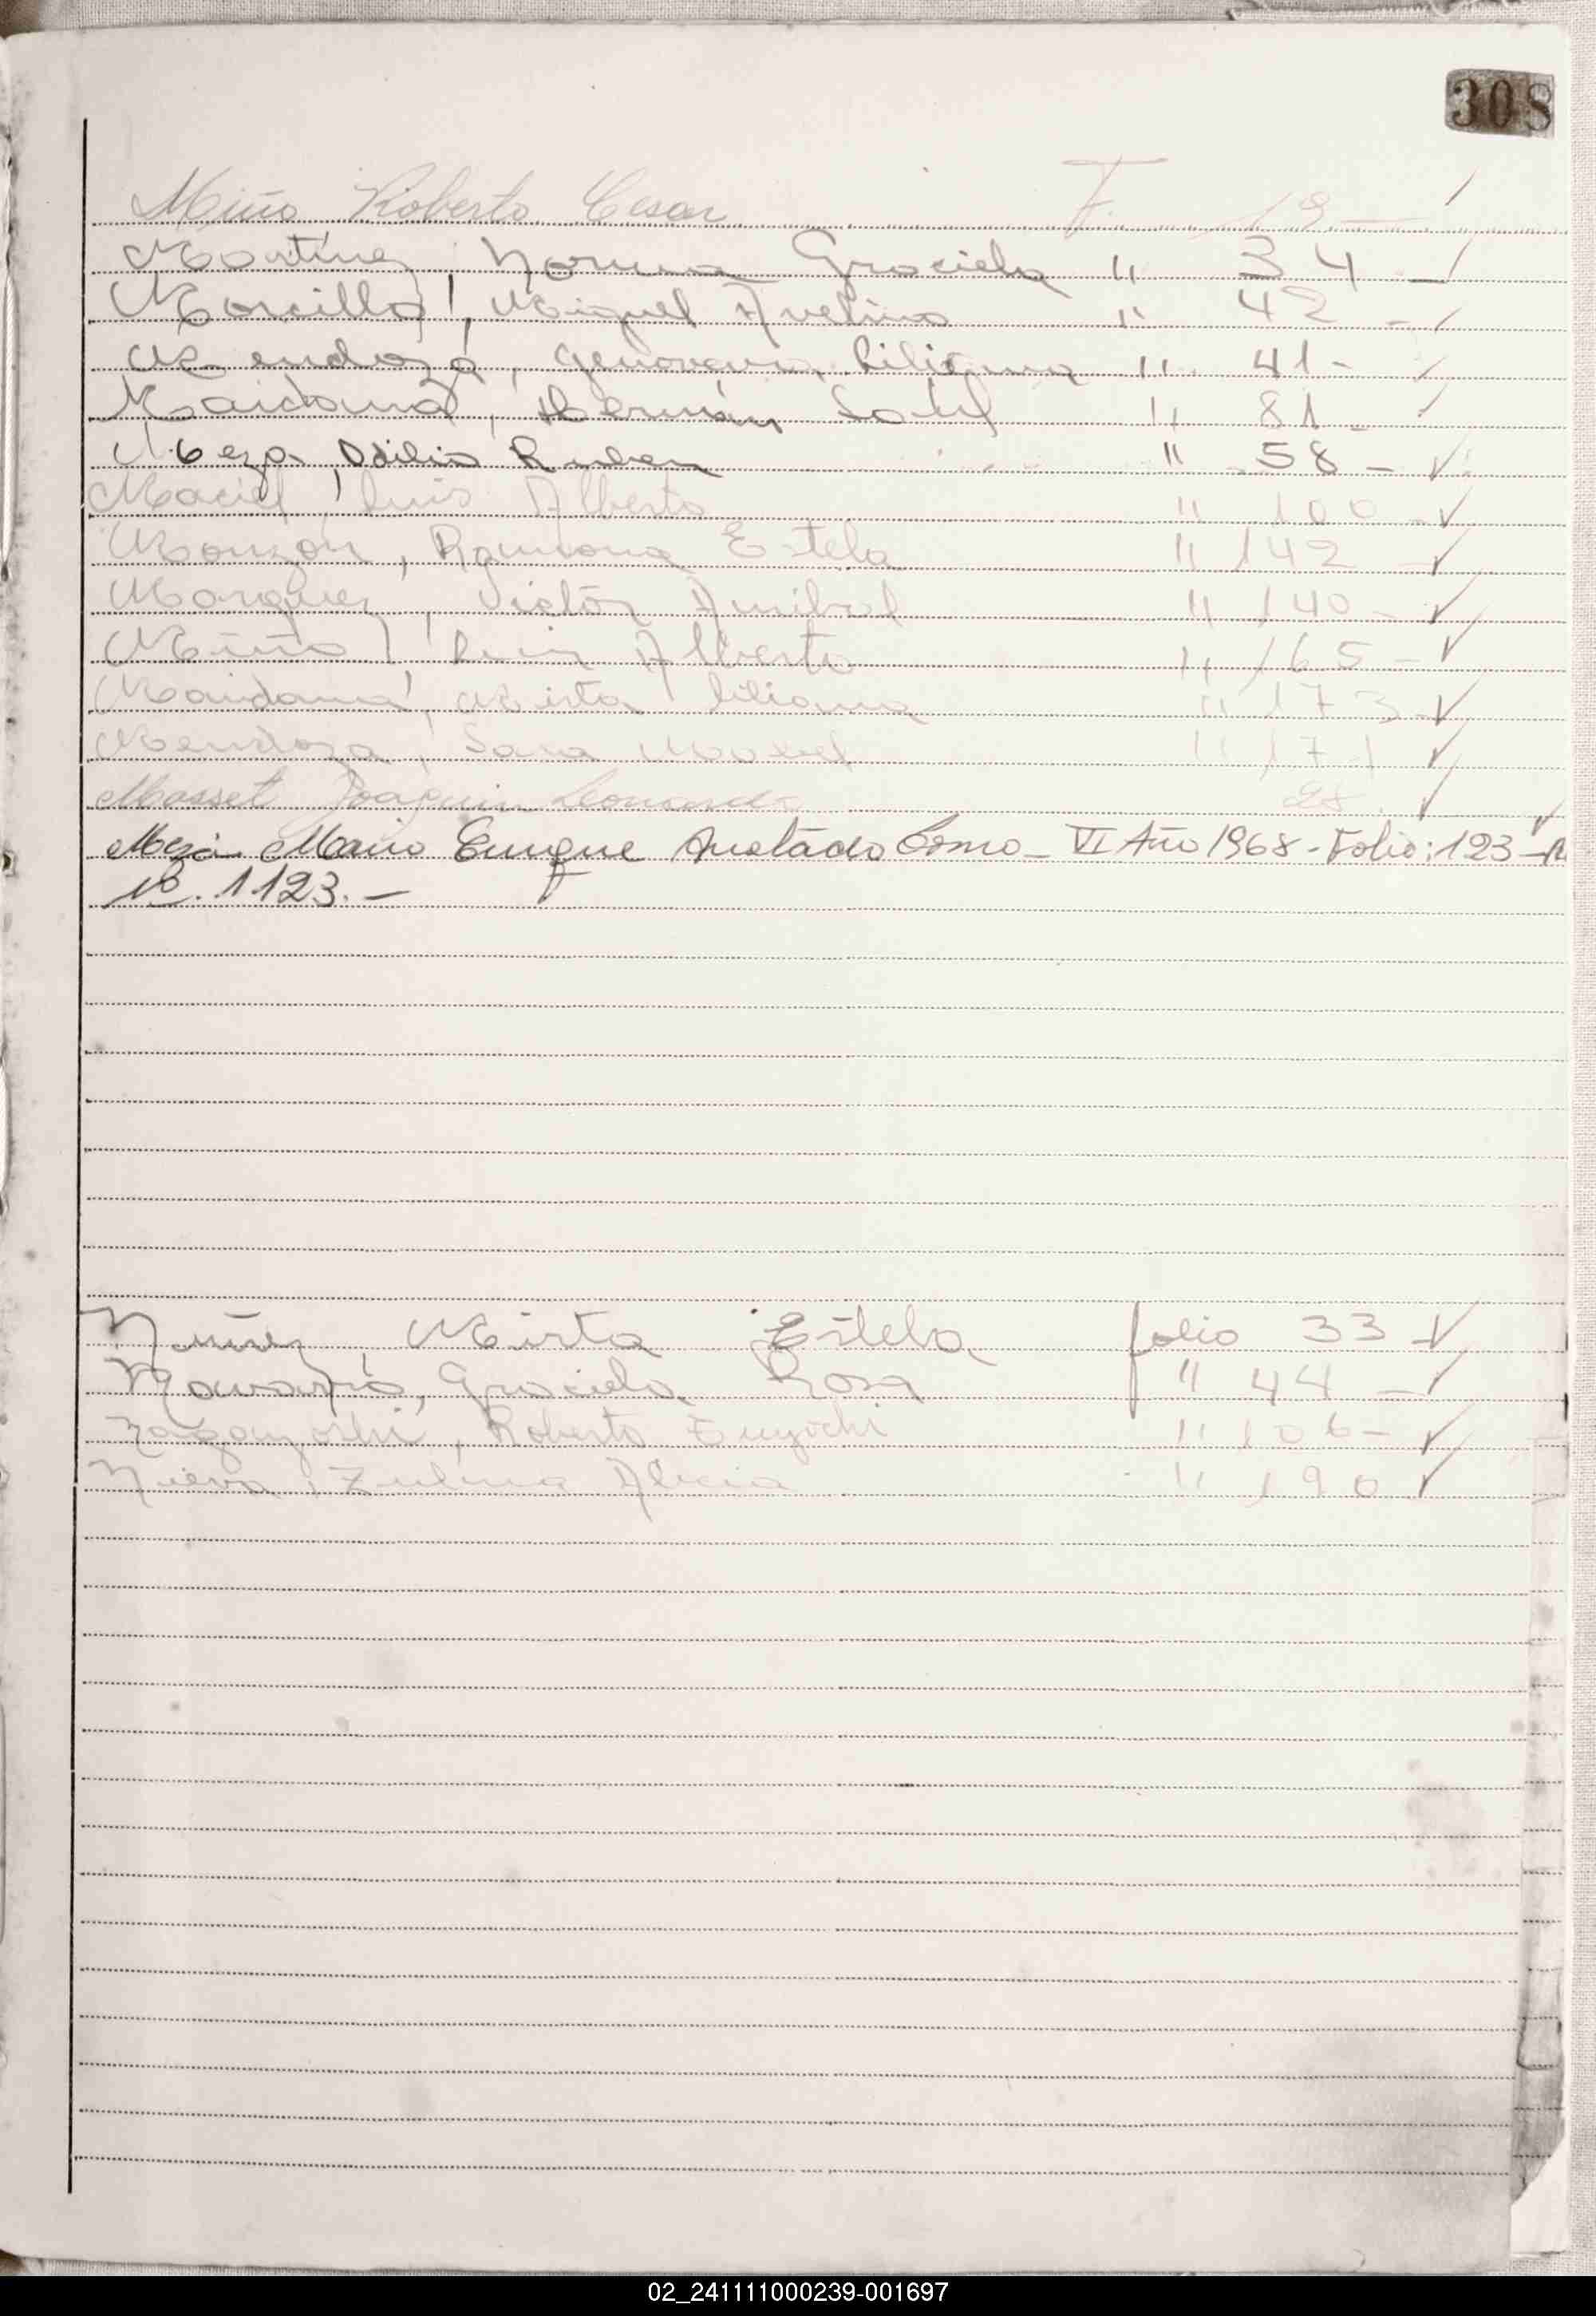 308
Miño Roberto Cesar F. 19 —
Martínez, Norma Graciela " 34 —
Morcillo, Miguel Avelino " 42 —
Mendoza, Genoveva Liliana " 41 -
Maidana, Hernán " 81 -
Meza, Odilio Ruben " 58 —
Maciel, Luis Alberto " 100 -
Monzón, Ramona Estela " 142 -
Marquez, Victór Anibal " 140 -
Miño, Luis Alberto " 165 -
Maidana, Mirta Liliana " 173 -
Mendoza, Sara Mabel " 171
Masset Joaquin Leonardo 28
Meza Mario Enrique Anotado Tomo - VI Año 1968 - Folio: 123 -
Nº. 1123. -
Nuñez, Mirta Estela folio 33 -
Navarro, Graciela Rosa " 44 -
Roberto " 106 -
Nieva, Zulma Alicia " 190
02_241111000239-001697